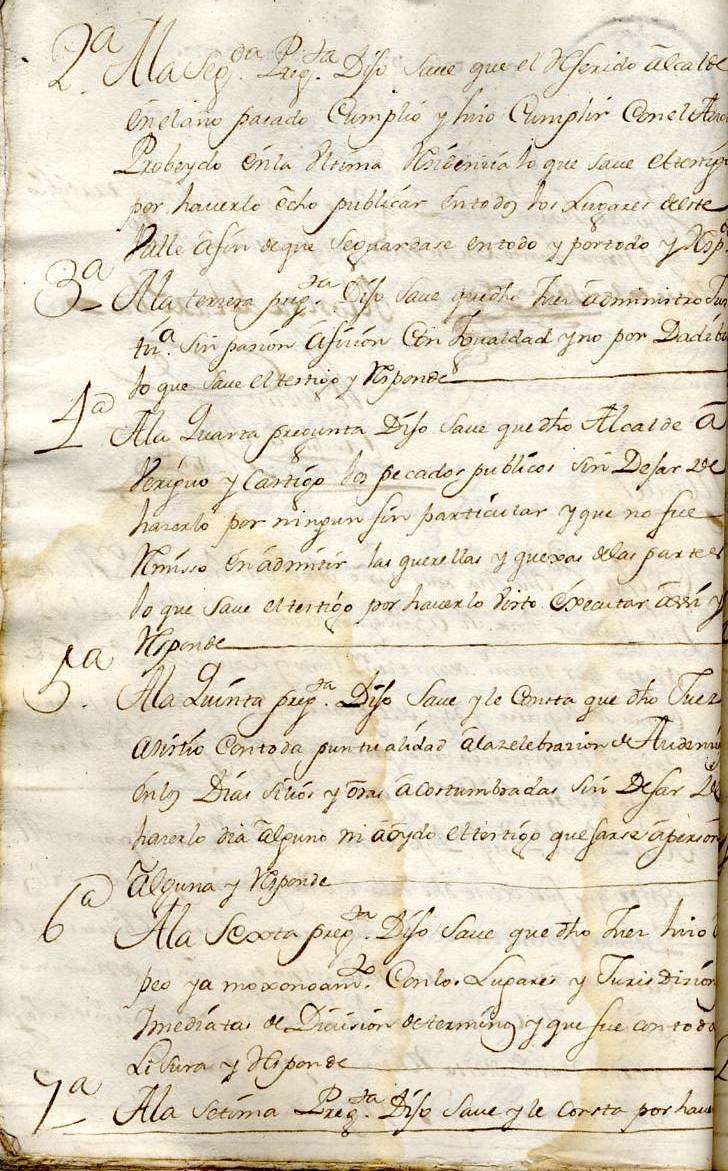 2ª Ala Segda Pregta Dijo Save que el referido alcalde
en el año pasado Cumplió y hizo Cumplir Con el Auto
Probeydo en la Ultima Residencia lo que save el testigo
por haverlo echo publicar en todos los Lugares de este
Valle a fin de que se guardase en todo y por todo y Respde
3ª Ala terzera pregta Dijo Save que dho Juez administro Jus
tiª. sin pasion afizion Con Igualdad y no por Dadibas
lo que save el testigo y Responde
4ª Ala Quarta pregunta Dijo Save que dho Alcalde a
Veriguo y Castigo los pecados publicos sin Dejar de
hazerlo por ningun fin particular y que no fue
Remisso en admitir las querellas y quexas de las partes
lo que save el testigo por haverlo Visto executar assi y
Responde
5ª. Ala Quinta pregta Dijo Save y le Consta que dho Juez
asistio con toda puntualidad a la zelebrazion de Audienzi
en los Dias sitios y oras acostumbradas sin Dejar de
hazerlo dia alguno ni a oydo el testigo quejarse a person
alguna y Responde
6ª Ala Sexta pregta. Dijo Save que dho Juez hizo
peo y amoxonoamto. Con los Lugares y Jurisdizion
Imediatas de Division de terminos y que fue con toda
Lisura y Responde
7ª Ala Setima Pregta. Dijo Save y le Consta por haver